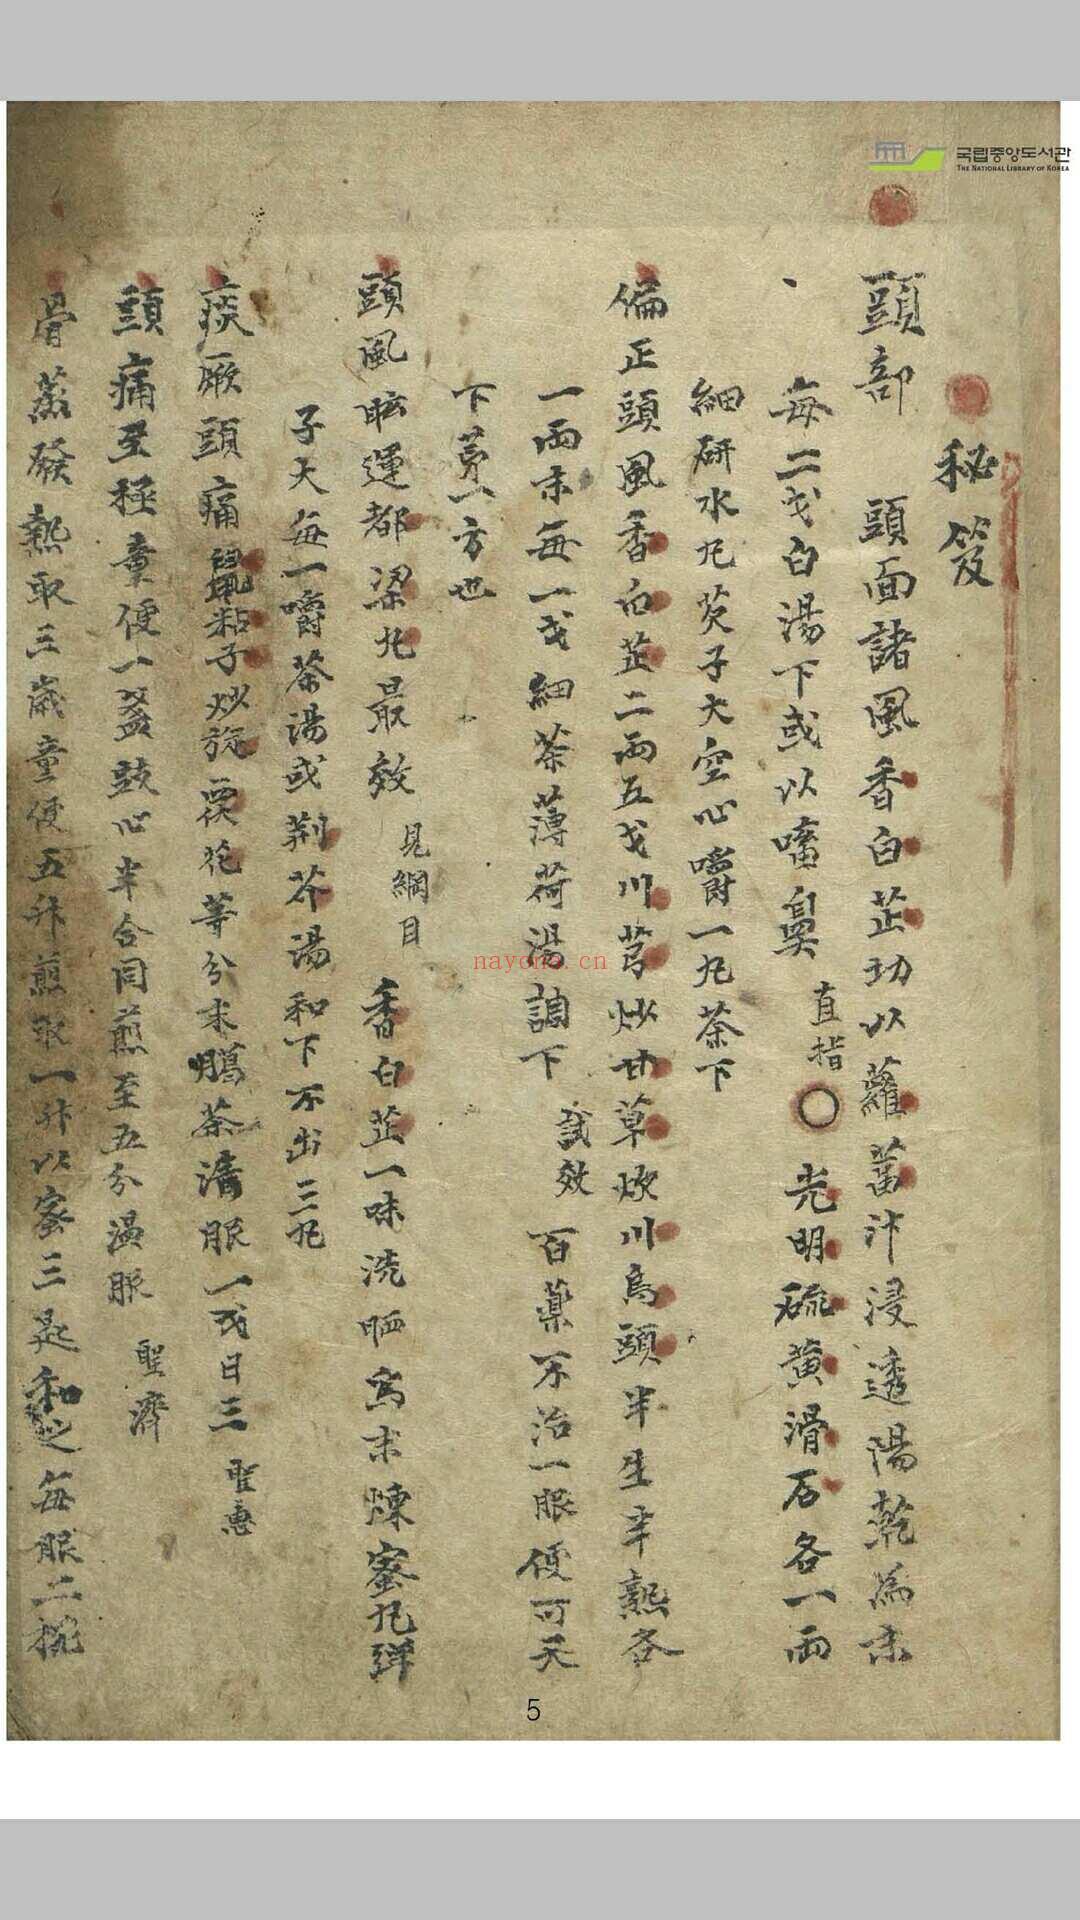 국립중앙도서관
THE NATIONAL LIBRARY OF KOREA
秘笈
頭部 頭面諸風香白芷切以蘿葍汁浸透陽乾為末
每二戔白湯下或以㗜鼻 直指 ○ 光明硫黃滑石各一兩
細研水丸芡子大空心嚼一丸茶下
偏正頭風香白芷二兩五戔川芎炒甘草炒川烏頭半生半熟各
一兩末每一戔細茶薄荷湯調下 試效 百藥不治一服便可天
下苐一方也
頭風眩運都梁丸最效 見綱目 香白芷一味洗晒為末煉蜜丸彈
子大每一嚼茶湯或荊芥湯和下不出三丸
痰厥頭痛鼠粘子炒旋葍花等分末臈茶清服一戔日三 聖惠
頭痛至極童便一盞豉心半合同煎至五分溫服 聖濟
骨蒸發熱取三歲童便五升煎取一升以蜜三匙和之每服二椀
nayona.cn
5